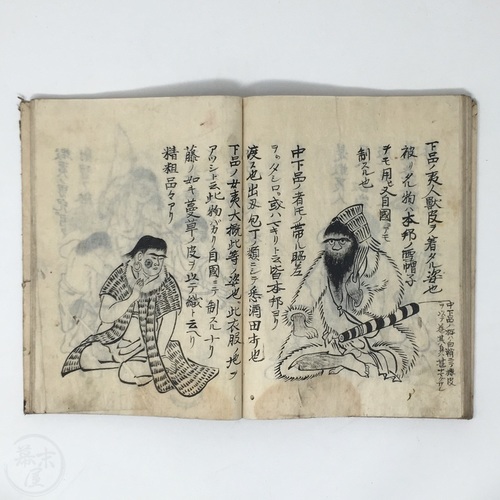 下品ノ夷人獣皮ヲ着タル姿也
被リ者ハ本邦ノ雪帽子
ヲモ用ヒ又自國ニテモ
制スル也
中下品ノ者
中下品ノ者モノ帯ル脇差
ヲハタシロ或ハマキリト云皆本邦ヨリ
渡ス也出刃包丁ノ類ニシテ悉酒田打也
下品ノ女夷大概此等ノ姿也此衣服地ヲ
アツシト云此物バカリ自國ニテ制スルナリ
藤ノ如キ蔓草ノ皮ヲ以テ織ト云リ
精粗品々アリ
幕末屋